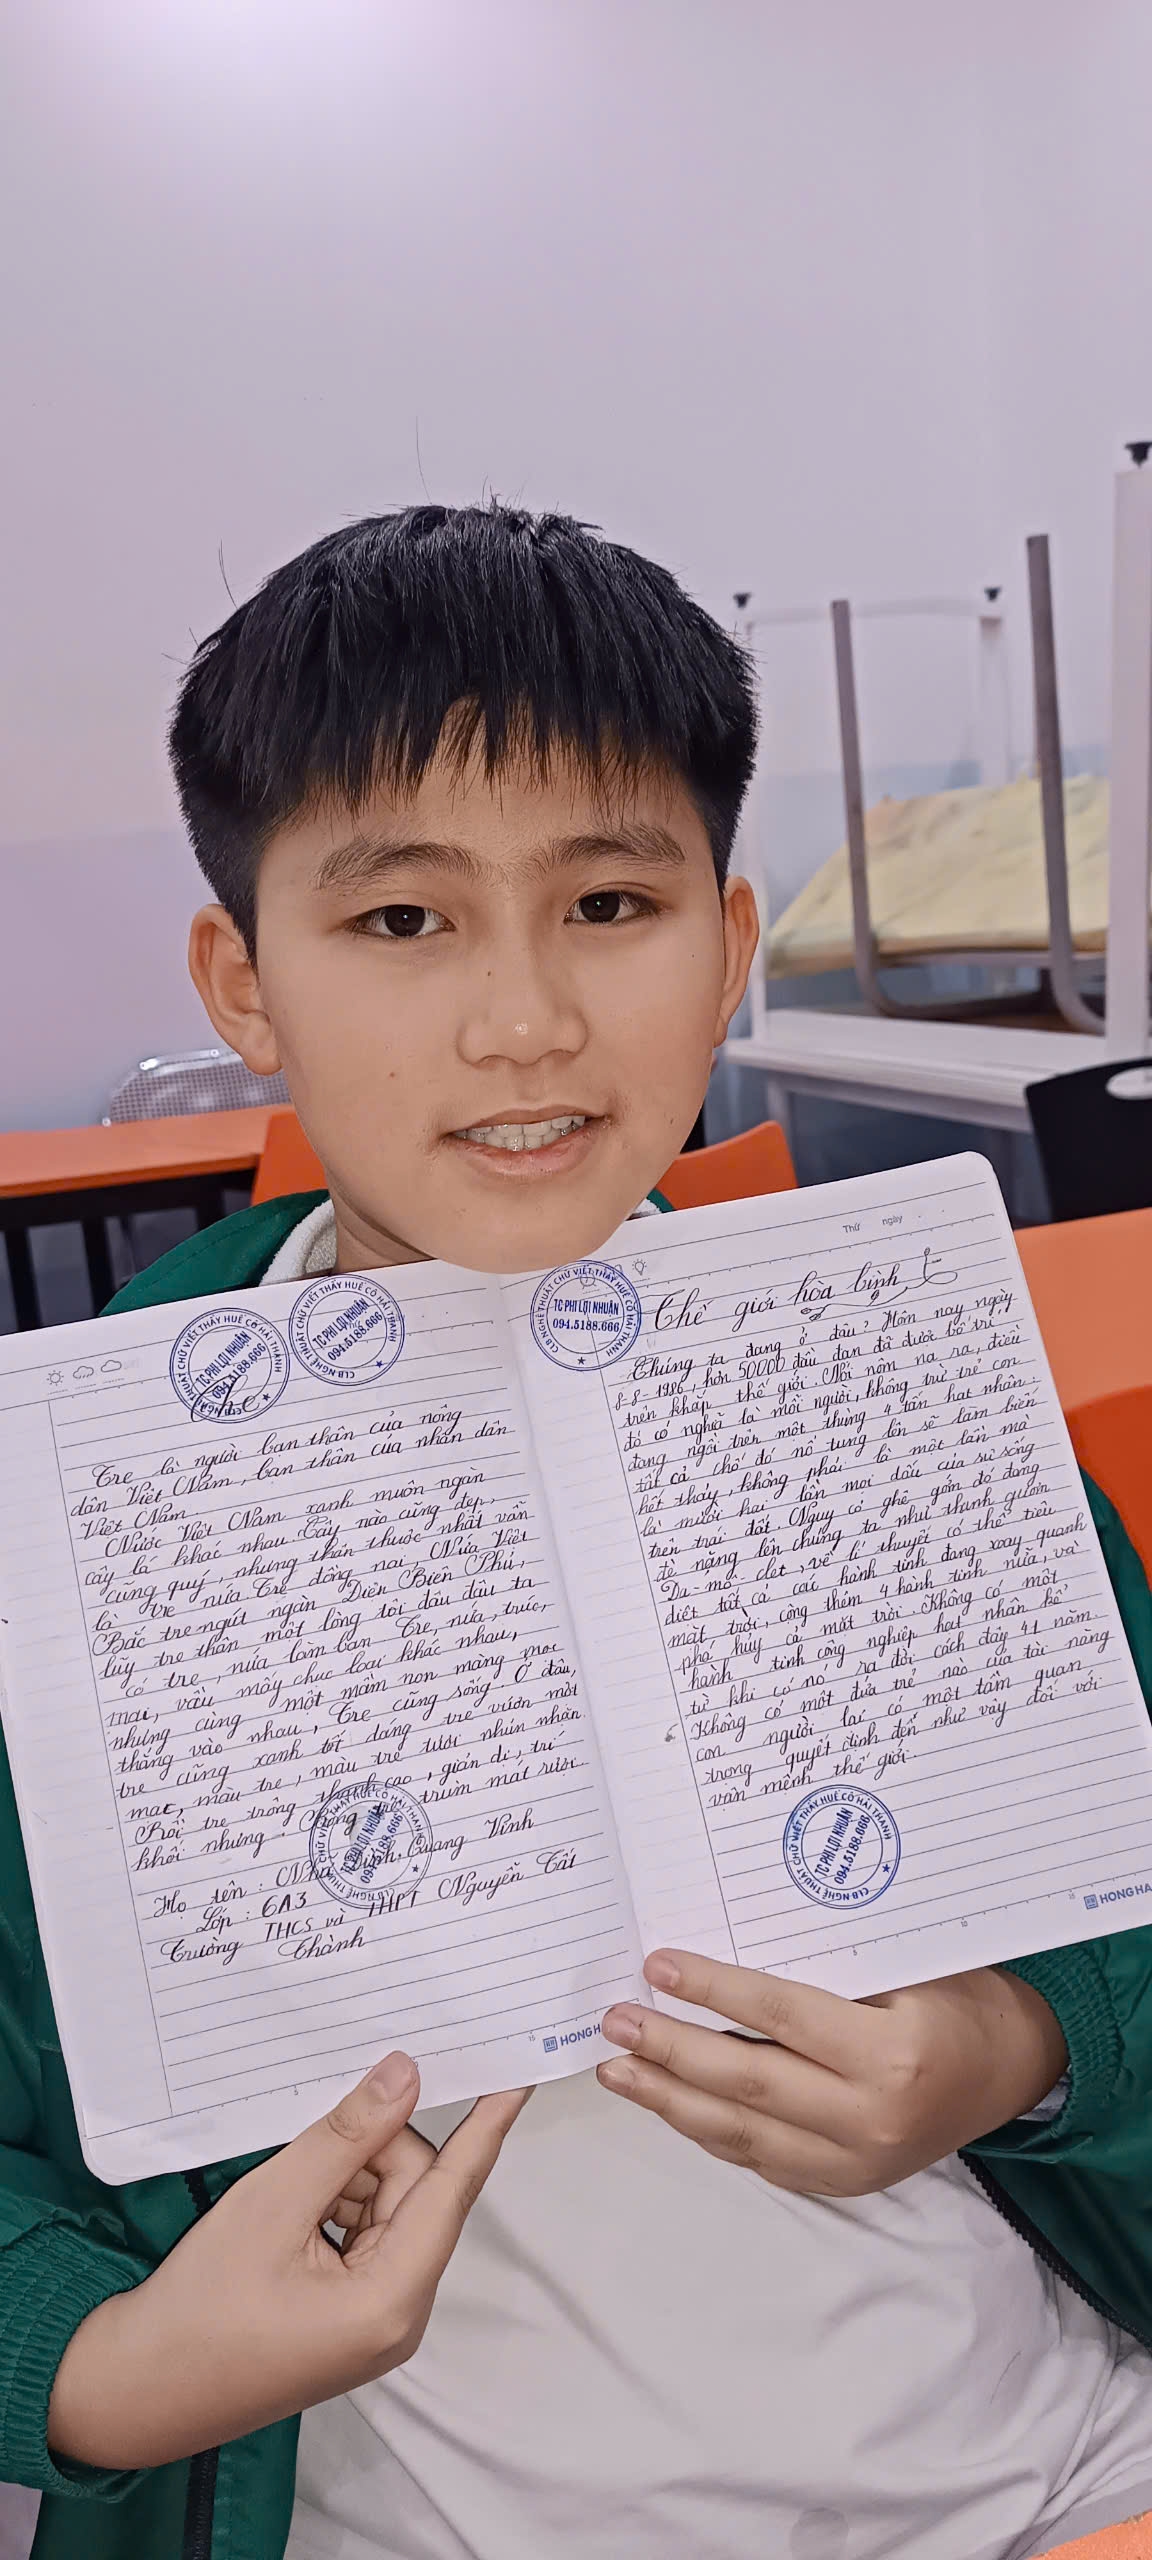 CLB NGHỆ THUẬT CHỮ VIẾT THẦY HUẾ CÔ HẢI THANH
TC PHI LỢI NHUẬN
094.5188.666
CLB NGHỆ THUẬT CHỮ VIẾT THẦY HUẾ CÔ HẢI THANH
TC PHI LỢI NHUẬN
094.5188.666
Tre là người bạn thân của nông
dân Việt Nam, bạn thân của nhân dân
Việt Nam
Nước Việt Nam xanh muôn ngàn
cây lá khác nhau. Cây nào cũng đẹp,
cũng quý, nhưng thân thuộc nhất vẫn
là tre nứa. Tre đồng nai, Nứa Việt
Bắc tre ngút ngàn Điện Biên Phủ,
lũy tre thân một lòng tôi đâu đâu ta
có tre, nứa làm bạn Tre, nứa, trúc,
mai, vầu mấy chục loại khác nhau,
nhưng cùng một mầm non măng mọc
thẳng vào nhau, Tre cũng sống. Ở đâu,
tre cũng xanh tốt dáng tre vươn một
mạc, màu tre, màu tre tươi nhũn nhặn.
Rồi tre trông thanh cao, giản dị, trí
khối nhưng. Bóng tre trùm mát rượi.
Họ tên: Như Đình Quang Vinh
Lớp: 6A3
Trường THCS và THPT Nguyễn Tất
Thành
CLB NGHỆ THUẬT CHỮ VIẾT THẦY HUẾ CÔ HẢI THANH
TC PHI LỢI NHUẬN
094.5188.666
15
HONG H
5
Thứ ngày
CLB NGHỆ THUẬT CHỮ VIẾT THẦY HUẾ CÔ HẢI THANH
TC PHI LỢI NHUẬN
094.5188.666
Thế giới hòa bình
Chúng ta đang ở đâu? Hôm nay ngày
8-8-1986, hơn 50000 đầu đạn đã được bố trí
trên khắp thế giới. Nói nôm na ra, điều
đó có nghĩa là mỗi người, không trừ trẻ con
đang ngồi trên một thùng 4 tấn hạt nhân:
tất cả chỗ đó nổ tung lên sẽ làm biến
hết thảy, không phải là một lần mà
là mười hai lần mọi dấu của sự sống
trên trái đất. Nguy cơ ghê gớm đó đang
đè nặng lên chúng ta như thanh gươm
Da-mô-clet, về lí thuyết có thể tiêu
diệt tất cả các hành tinh đang xoay quanh
mặt trời, cộng thêm 4 hành tinh nữa, và
phá hủy cả mặt trời. Không có một
hành tinh công nghiệp hạt nhân kể
từ khi có nó ra đời cách đây 41 năm.
Không có một đứa trẻ nào của tài năng
con người lại có một tầm quan
trọng quyết định đến như vậy đối với
vận mệnh thế giới.
CLB NGHỆ THUẬT CHỮ VIẾT THẦY HUẾ CÔ HẢI THANH
TC PHI LỢI NHUẬN
094.5188.666
5
10
15
HONG HA